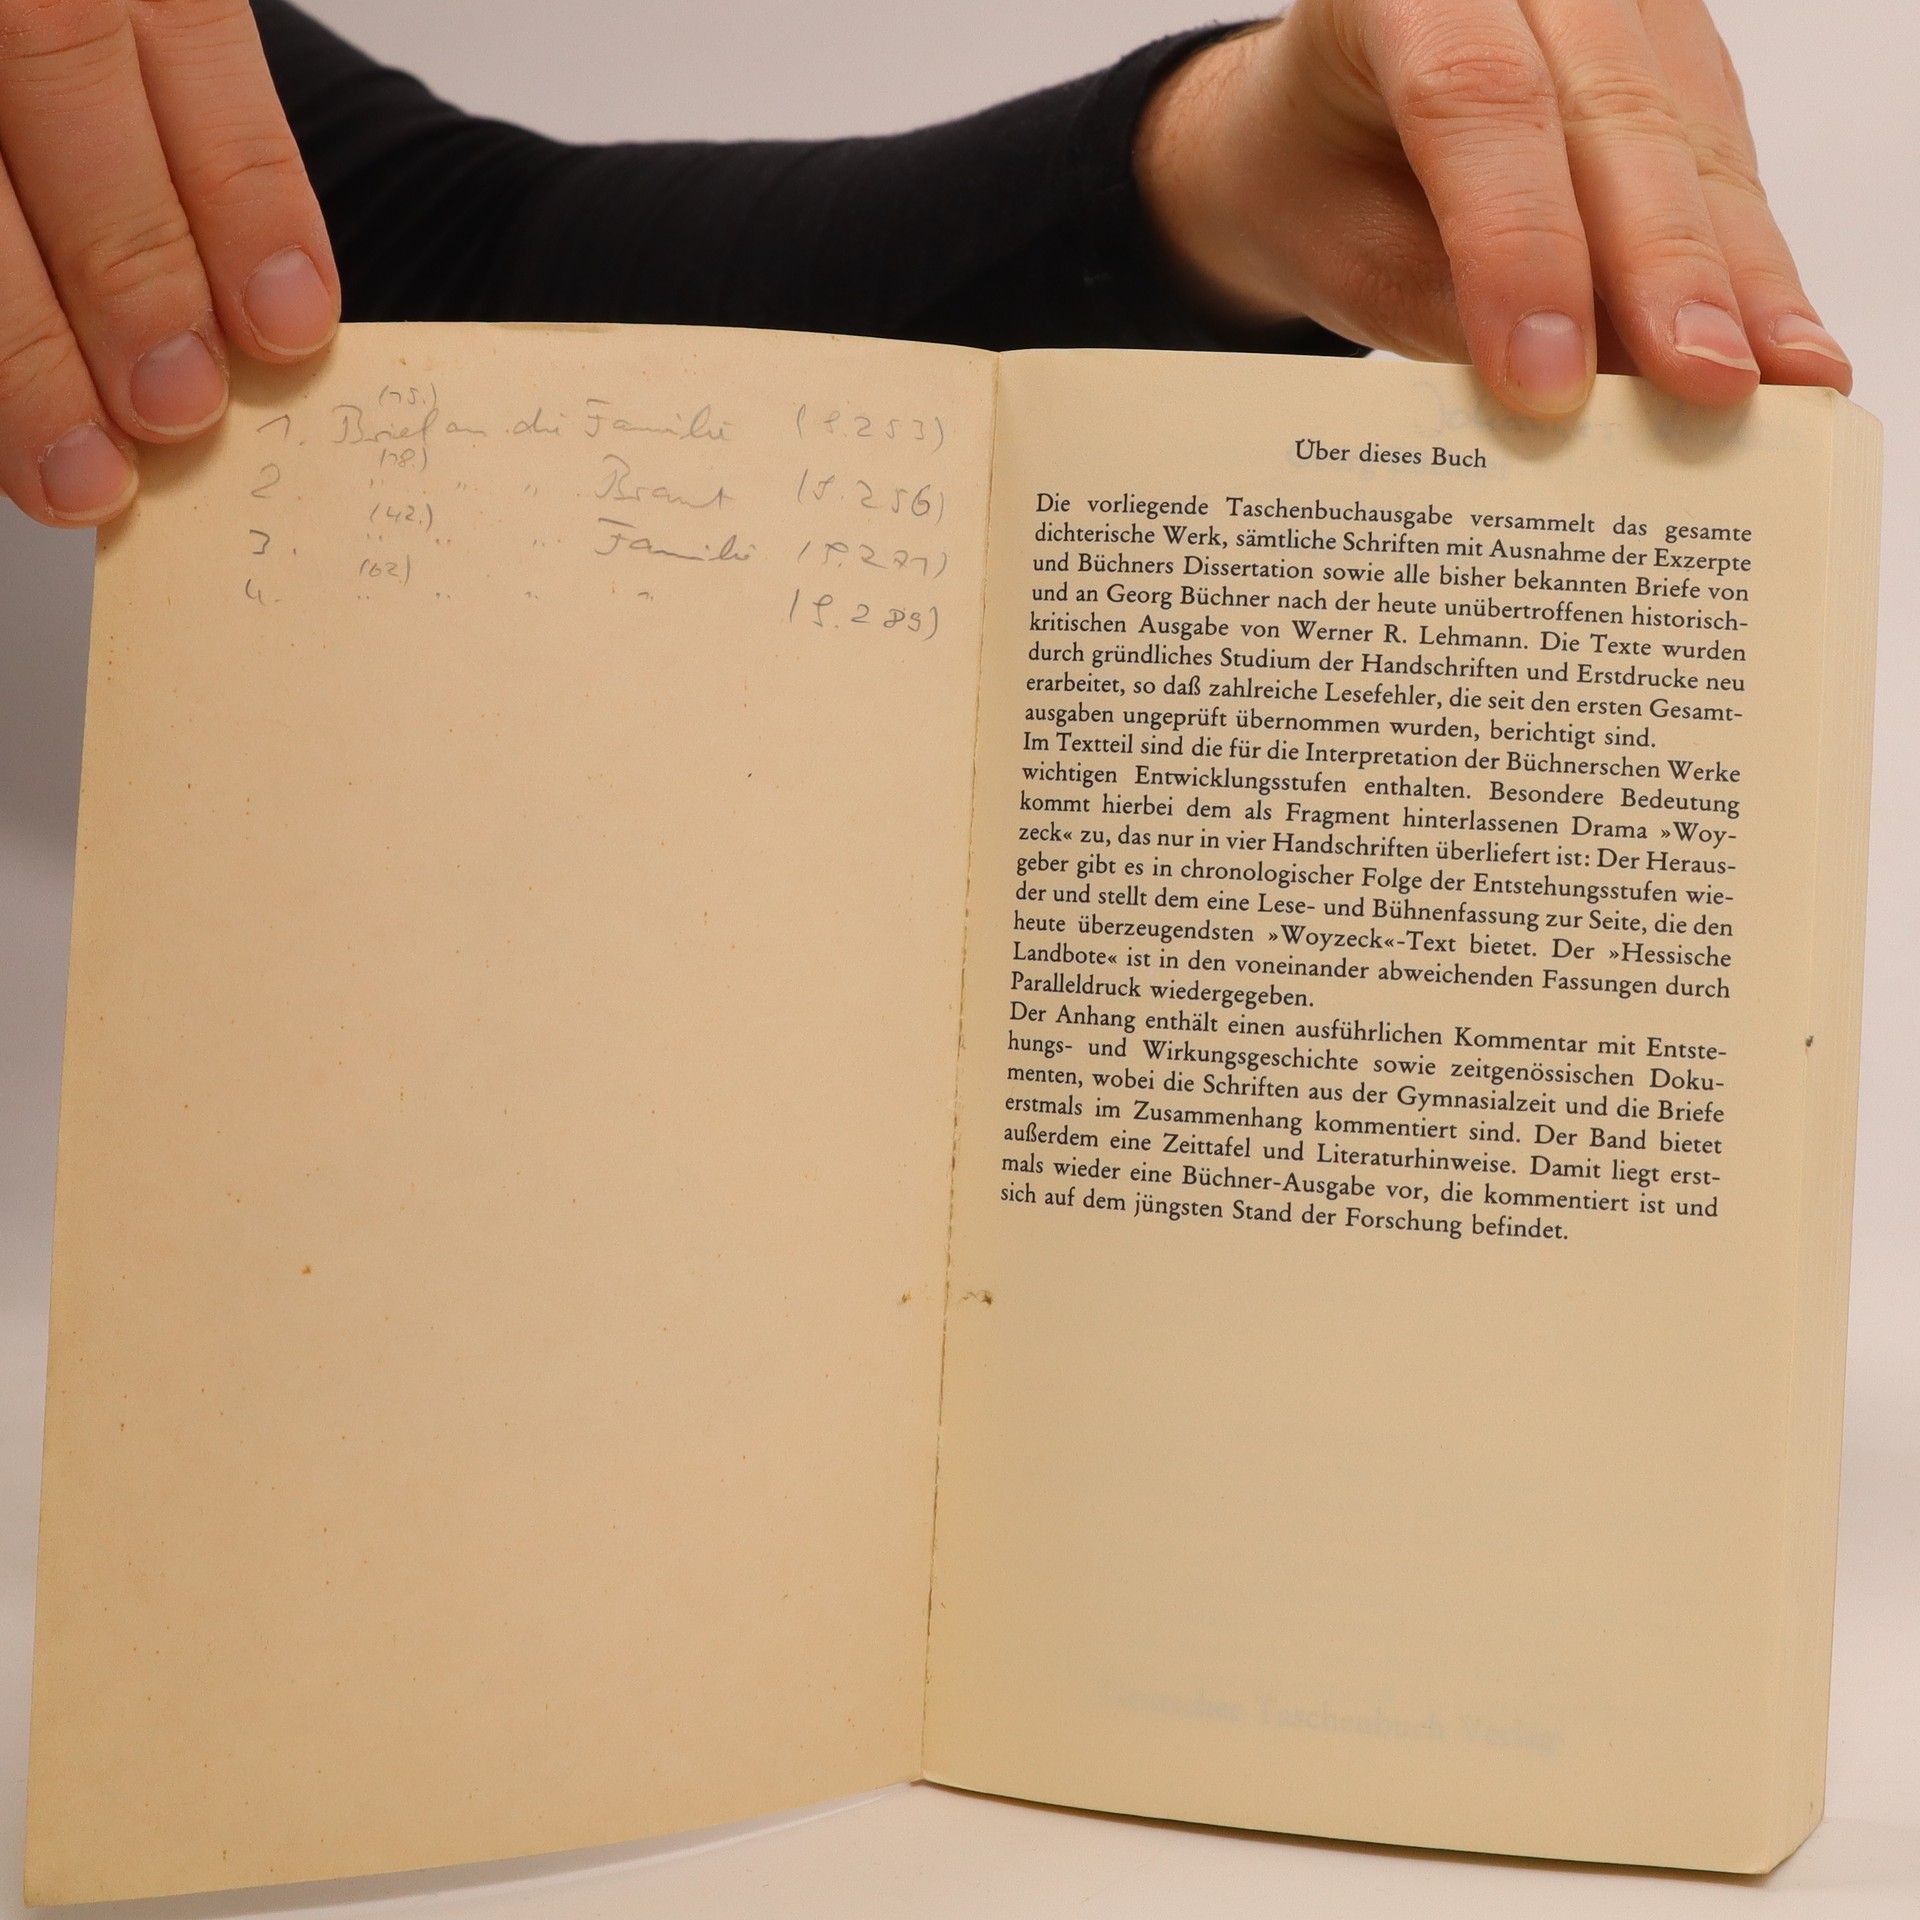 (15.)
1. Brief an die Familie (S. 253)
(18.)
2. " " " Braut (S. 256)
(42.)
3. " " " Familie (S. 271)
(62)
4. " " " " (S. 289)
Über dieses Buch
Die vorliegende Taschenbuchausgabe versammelt das gesamte
dichterische Werk, sämtliche Schriften mit Ausnahme der Exzerpte
und Büchners Dissertation sowie alle bisher bekannten Briefe von
und an Georg Büchner nach der heute unübertroffenen historisch-
kritischen Ausgabe von Werner R. Lehmann. Die Texte wurden
durch gründliches Studium der Handschriften und Erstdrucke neu
erarbeitet, so daß zahlreiche Lesefehler, die seit den ersten Gesamt-
ausgaben ungeprüft übernommen wurden, berichtigt sind.
Im Textteil sind die für die Interpretation der Büchnerschen Werke
wichtigen Entwicklungsstufen enthalten. Besondere Bedeutung
kommt hierbei dem als Fragment hinterlassenen Drama »Woy-
zeck« zu, das nur in vier Handschriften überliefert ist: Der Heraus-
geber gibt es in chronologischer Folge der Entstehungsstufen wie-
der und stellt dem eine Lese- und Bühnenfassung zur Seite, die den
heute überzeugendsten »Woyzeck«-Text bietet. Der »Hessische
Landbote« ist in den voneinander abweichenden Fassungen durch
Paralleldruck wiedergegeben.
Der Anhang enthält einen ausführlichen Kommentar mit Entste-
hungs- und Wirkungsgeschichte sowie zeitgenössischen Doku-
menten, wobei die Schriften aus der Gymnasialzeit und die Briefe
erstmals im Zusammenhang kommentiert sind. Der Band bietet
außerdem eine Zeittafel und Literaturhinweise. Damit liegt erst-
mals wieder eine Büchner-Ausgabe vor, die kommentiert ist und
sich auf dem jüngsten Stand der Forschung befindet.